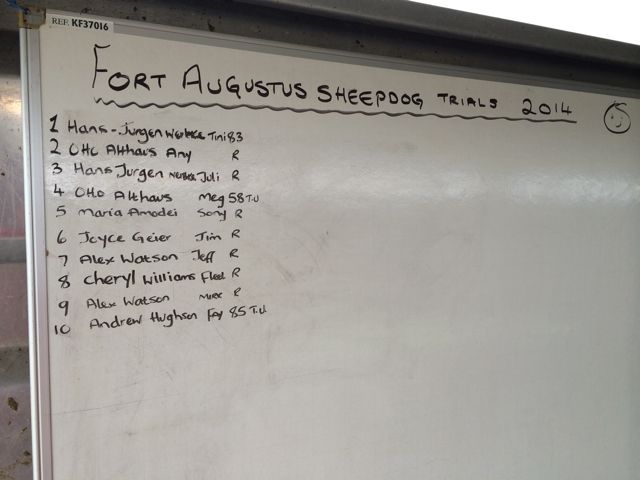 REF. KF37016
FORT AUGUSTUS SHEEPDOG TRIALS 2014
1 Hans-Jurgen Tini 83
2 OHO Althaus Any R
3 Hans Jurgen Juli R
4 OHO Althaus Meg 58 T.U
5 Maria Amodei Sony R
6 Joyce Geier Jim R
7 Alex Watson Jeff R
8 Cheryl Williams Fleet R
9 Alex Watson R
10 Andrew Hughson Fay 85 T.U